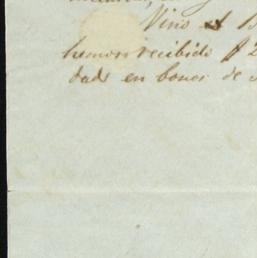 Vino el B
hemos recibido $ 2
dads en bonos de